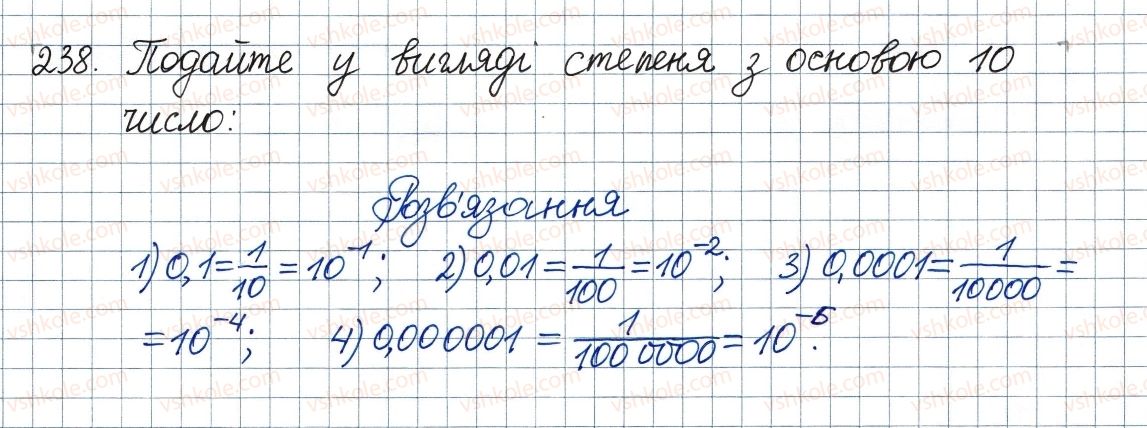 238. Подайте у вигляді степеня з основою 10
число:
Розв'язання
1) 0,1 = 1/10 = 10^-1; 2) 0,01 = 1/100 = 10^-2; 3) 0,0001 = 1/10000 =
= 10^-4; 4) 0,000001 = 1/1000000 = 10^-6.